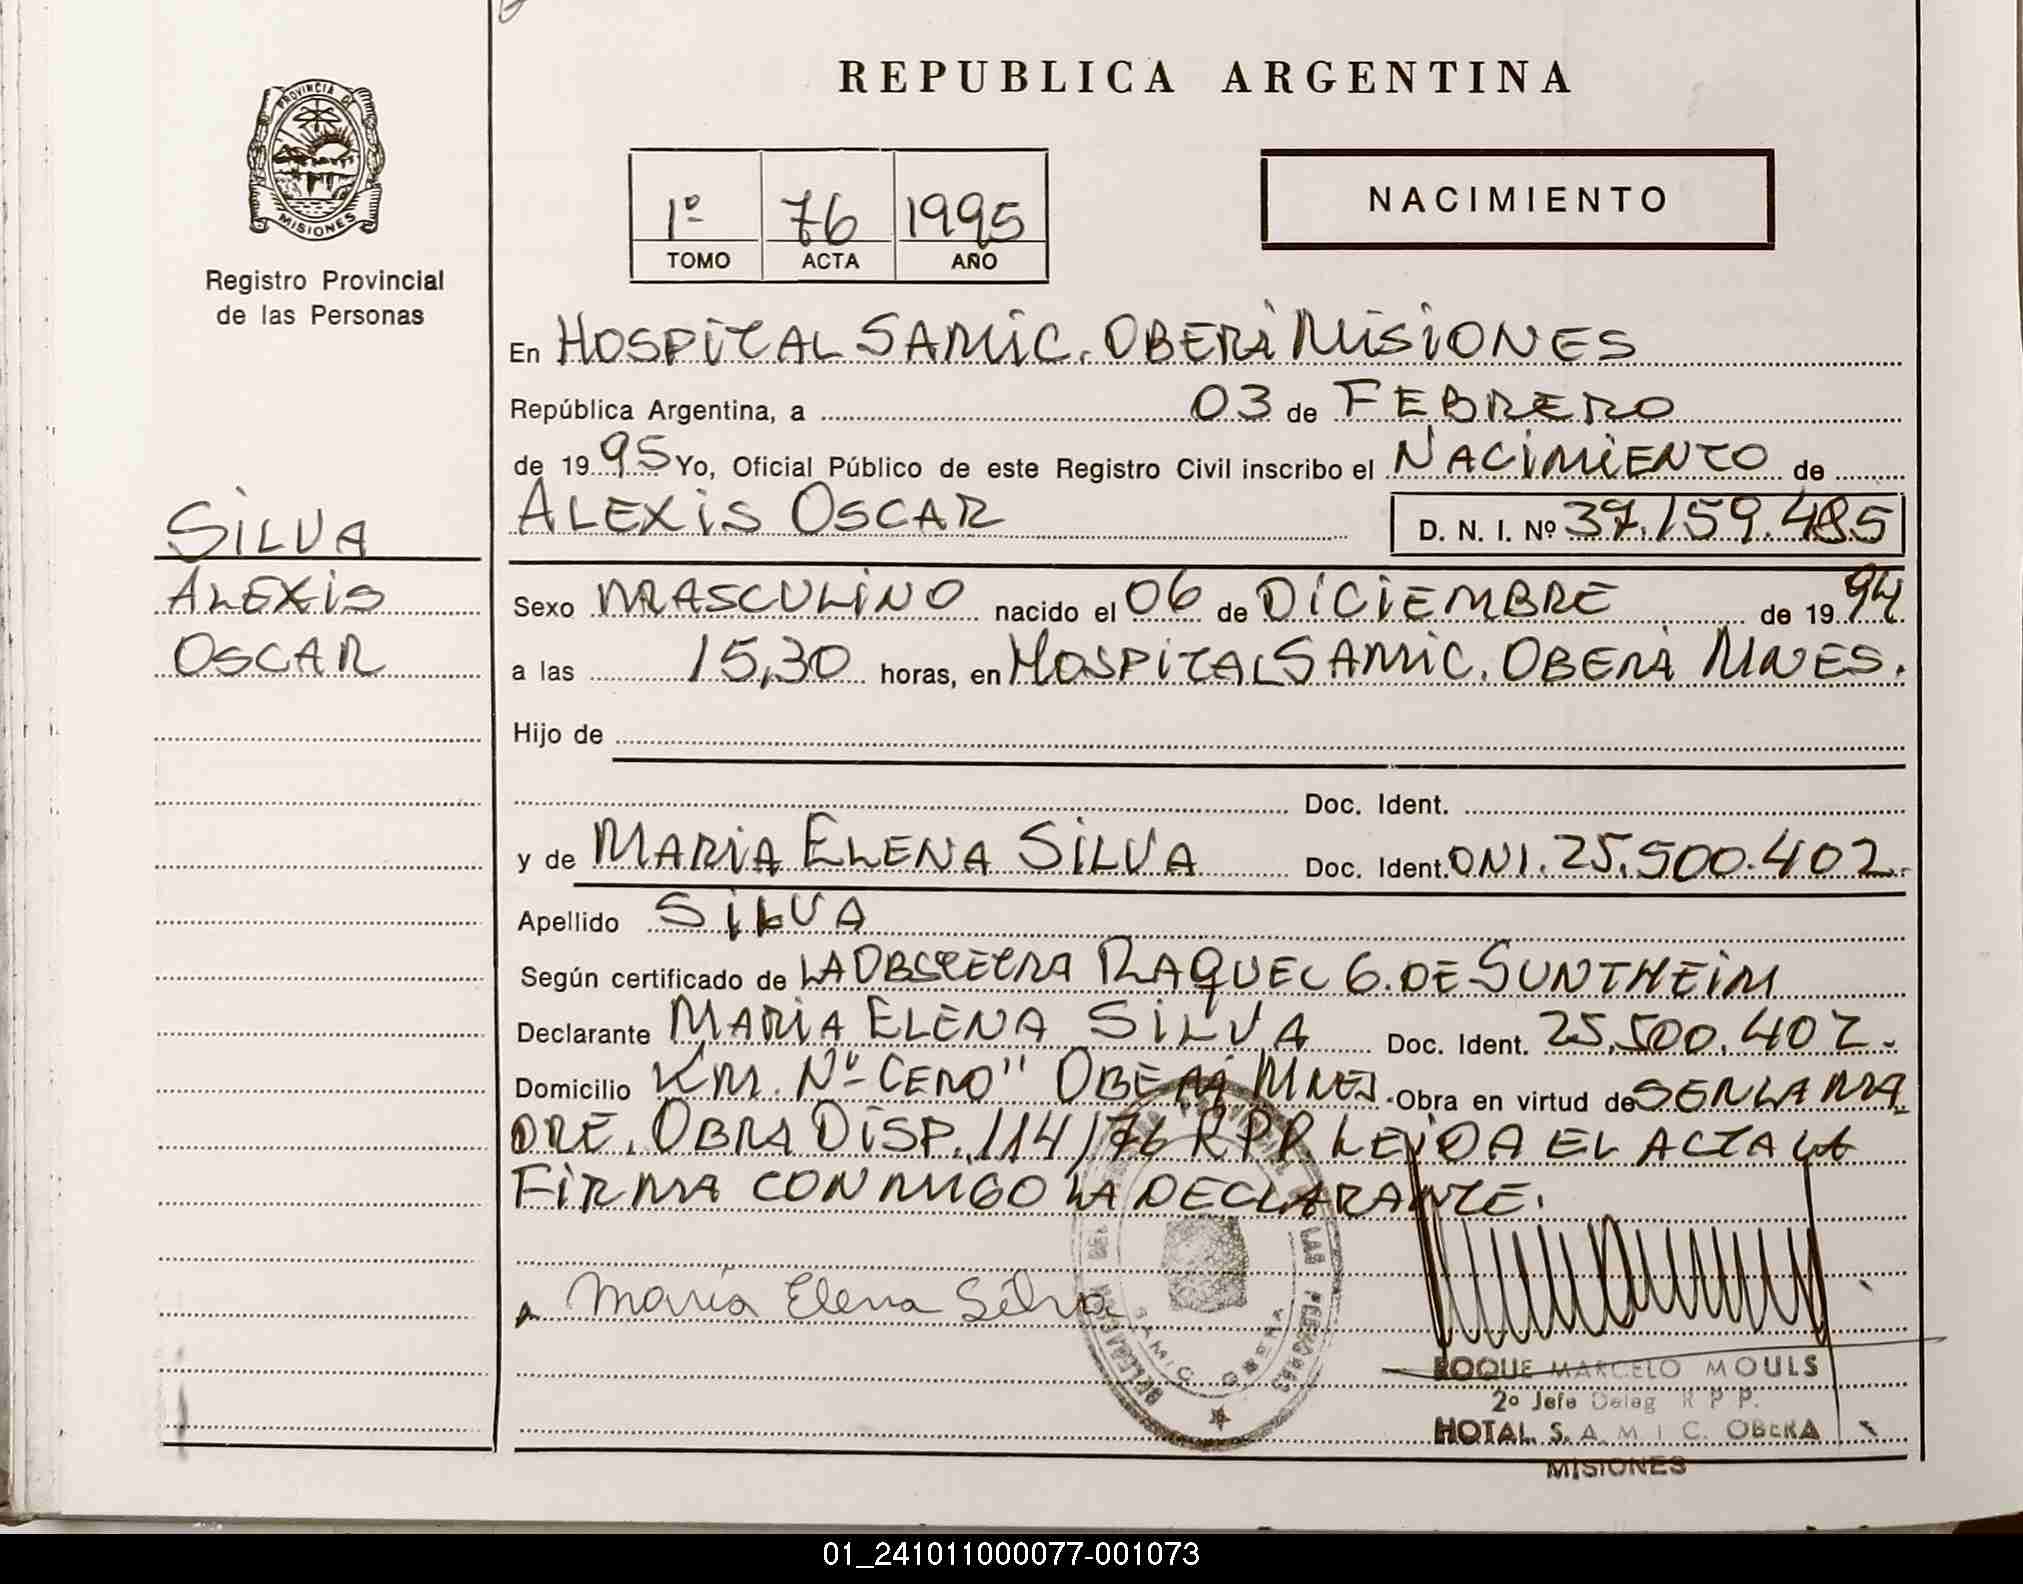 REPUBLICA ARGENTINA
PROVINCIA DE
MISIONES
Registro Provincial
de las Personas
1º 76 1995
TOMO ACTA AÑO
NACIMIENTO
En HOSPITAL SAMIC. OBERÁ MISIONES
República Argentina, a 03 de FEBRERO
de 1995 Yo, Oficial Público de este Registro Civil inscribo el NACIMIENTO de
ALEXIS OSCAR D. N. I. Nº 37.159.485
SILVA
ALEXIS
OSCAR
Sexo MASCULINO nacido el 06 de DICIEMBRE de 1994
a las 15,30 horas, en HOSPITAL SAMIC. OBERÁ MNES.
Hijo de
Doc. Ident.
y de MARIA ELENA SILVA Doc. Ident. DNI. 25.500.402.-
Apellido SILVA
Según certificado de LA OBSTETRA RAQUEL G. DE SUNTHEIM
Declarante MARIA ELENA SILVA Doc. Ident. 25.500.402.-
Domicilio KM. Nº CERO" OBERÁ MNES. Obra en virtud de SER LA MA
DRE. OBRA DISP. 114/76 RPP LEIDA EL ACTA LA
FIRMA CONMIGO LA DECLARANTE.
María Elena Silva
DELEGACION DEL LAS PERSONAS
SAMIC OBERA
ROQUE MARCELO MOULS
2º Jefe Deleg R P P.
HOTAL. S. A. M. I. C. OBERA
MISIONES
01_241011000077-001073